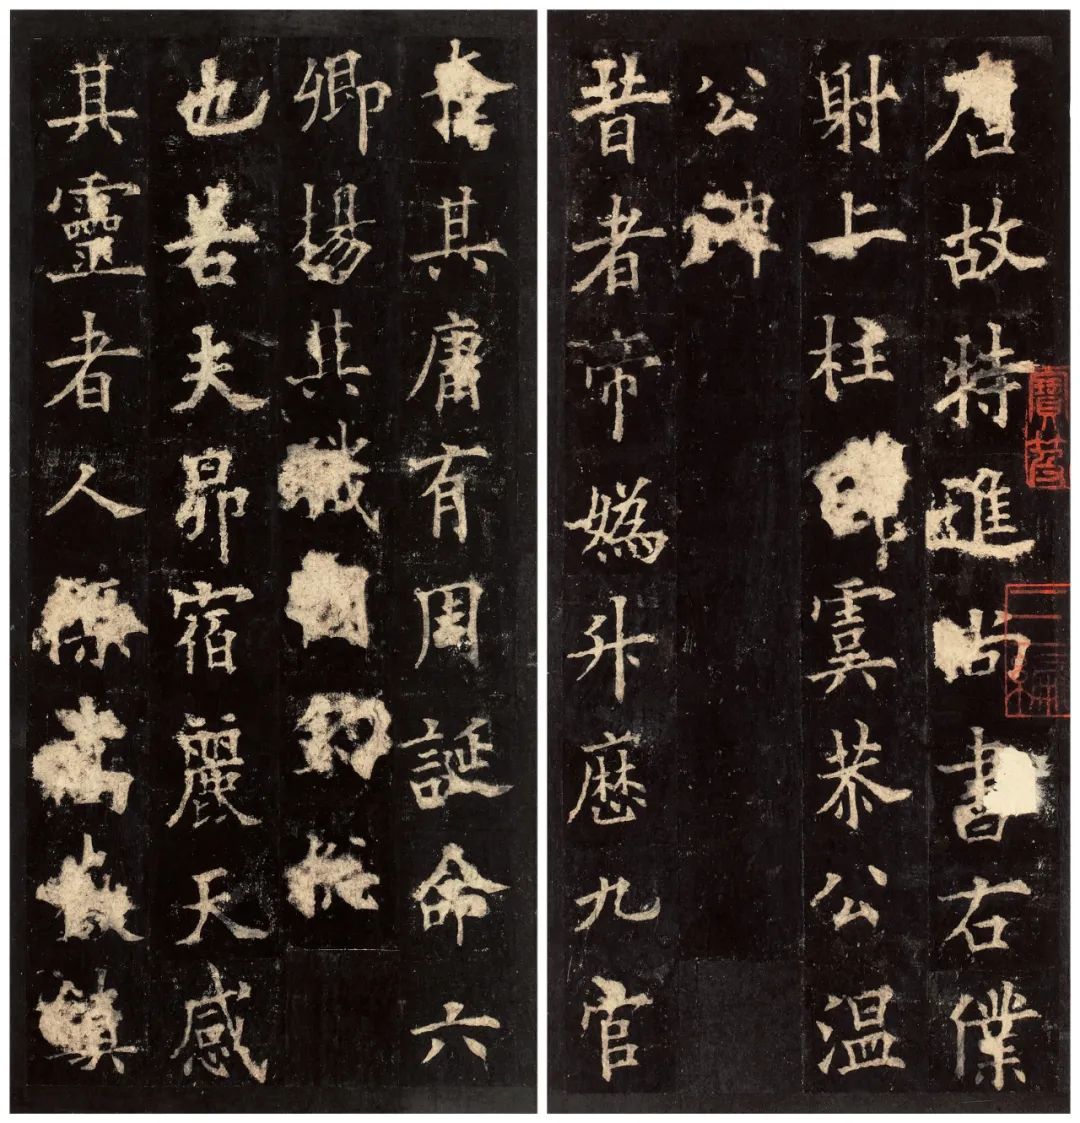 唐故特進尚書右僕
射上柱虞恭公温
公碑
昔者帝媯升歷九官
其庸有周誕命六
卿揚其職
也若夫昴宿麗天感
其靈者人傑嵩鎮